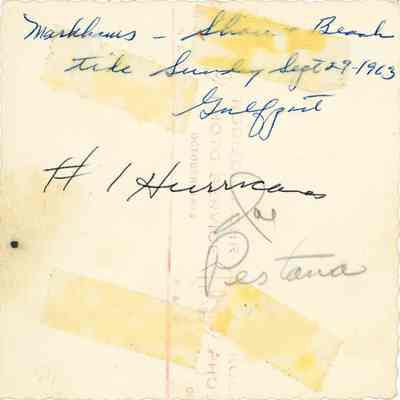 Markhams - Shows Beach
tide Sunday Sept 29-1963
Gulfport
# 1 Hurricanes
Joe
Pestana